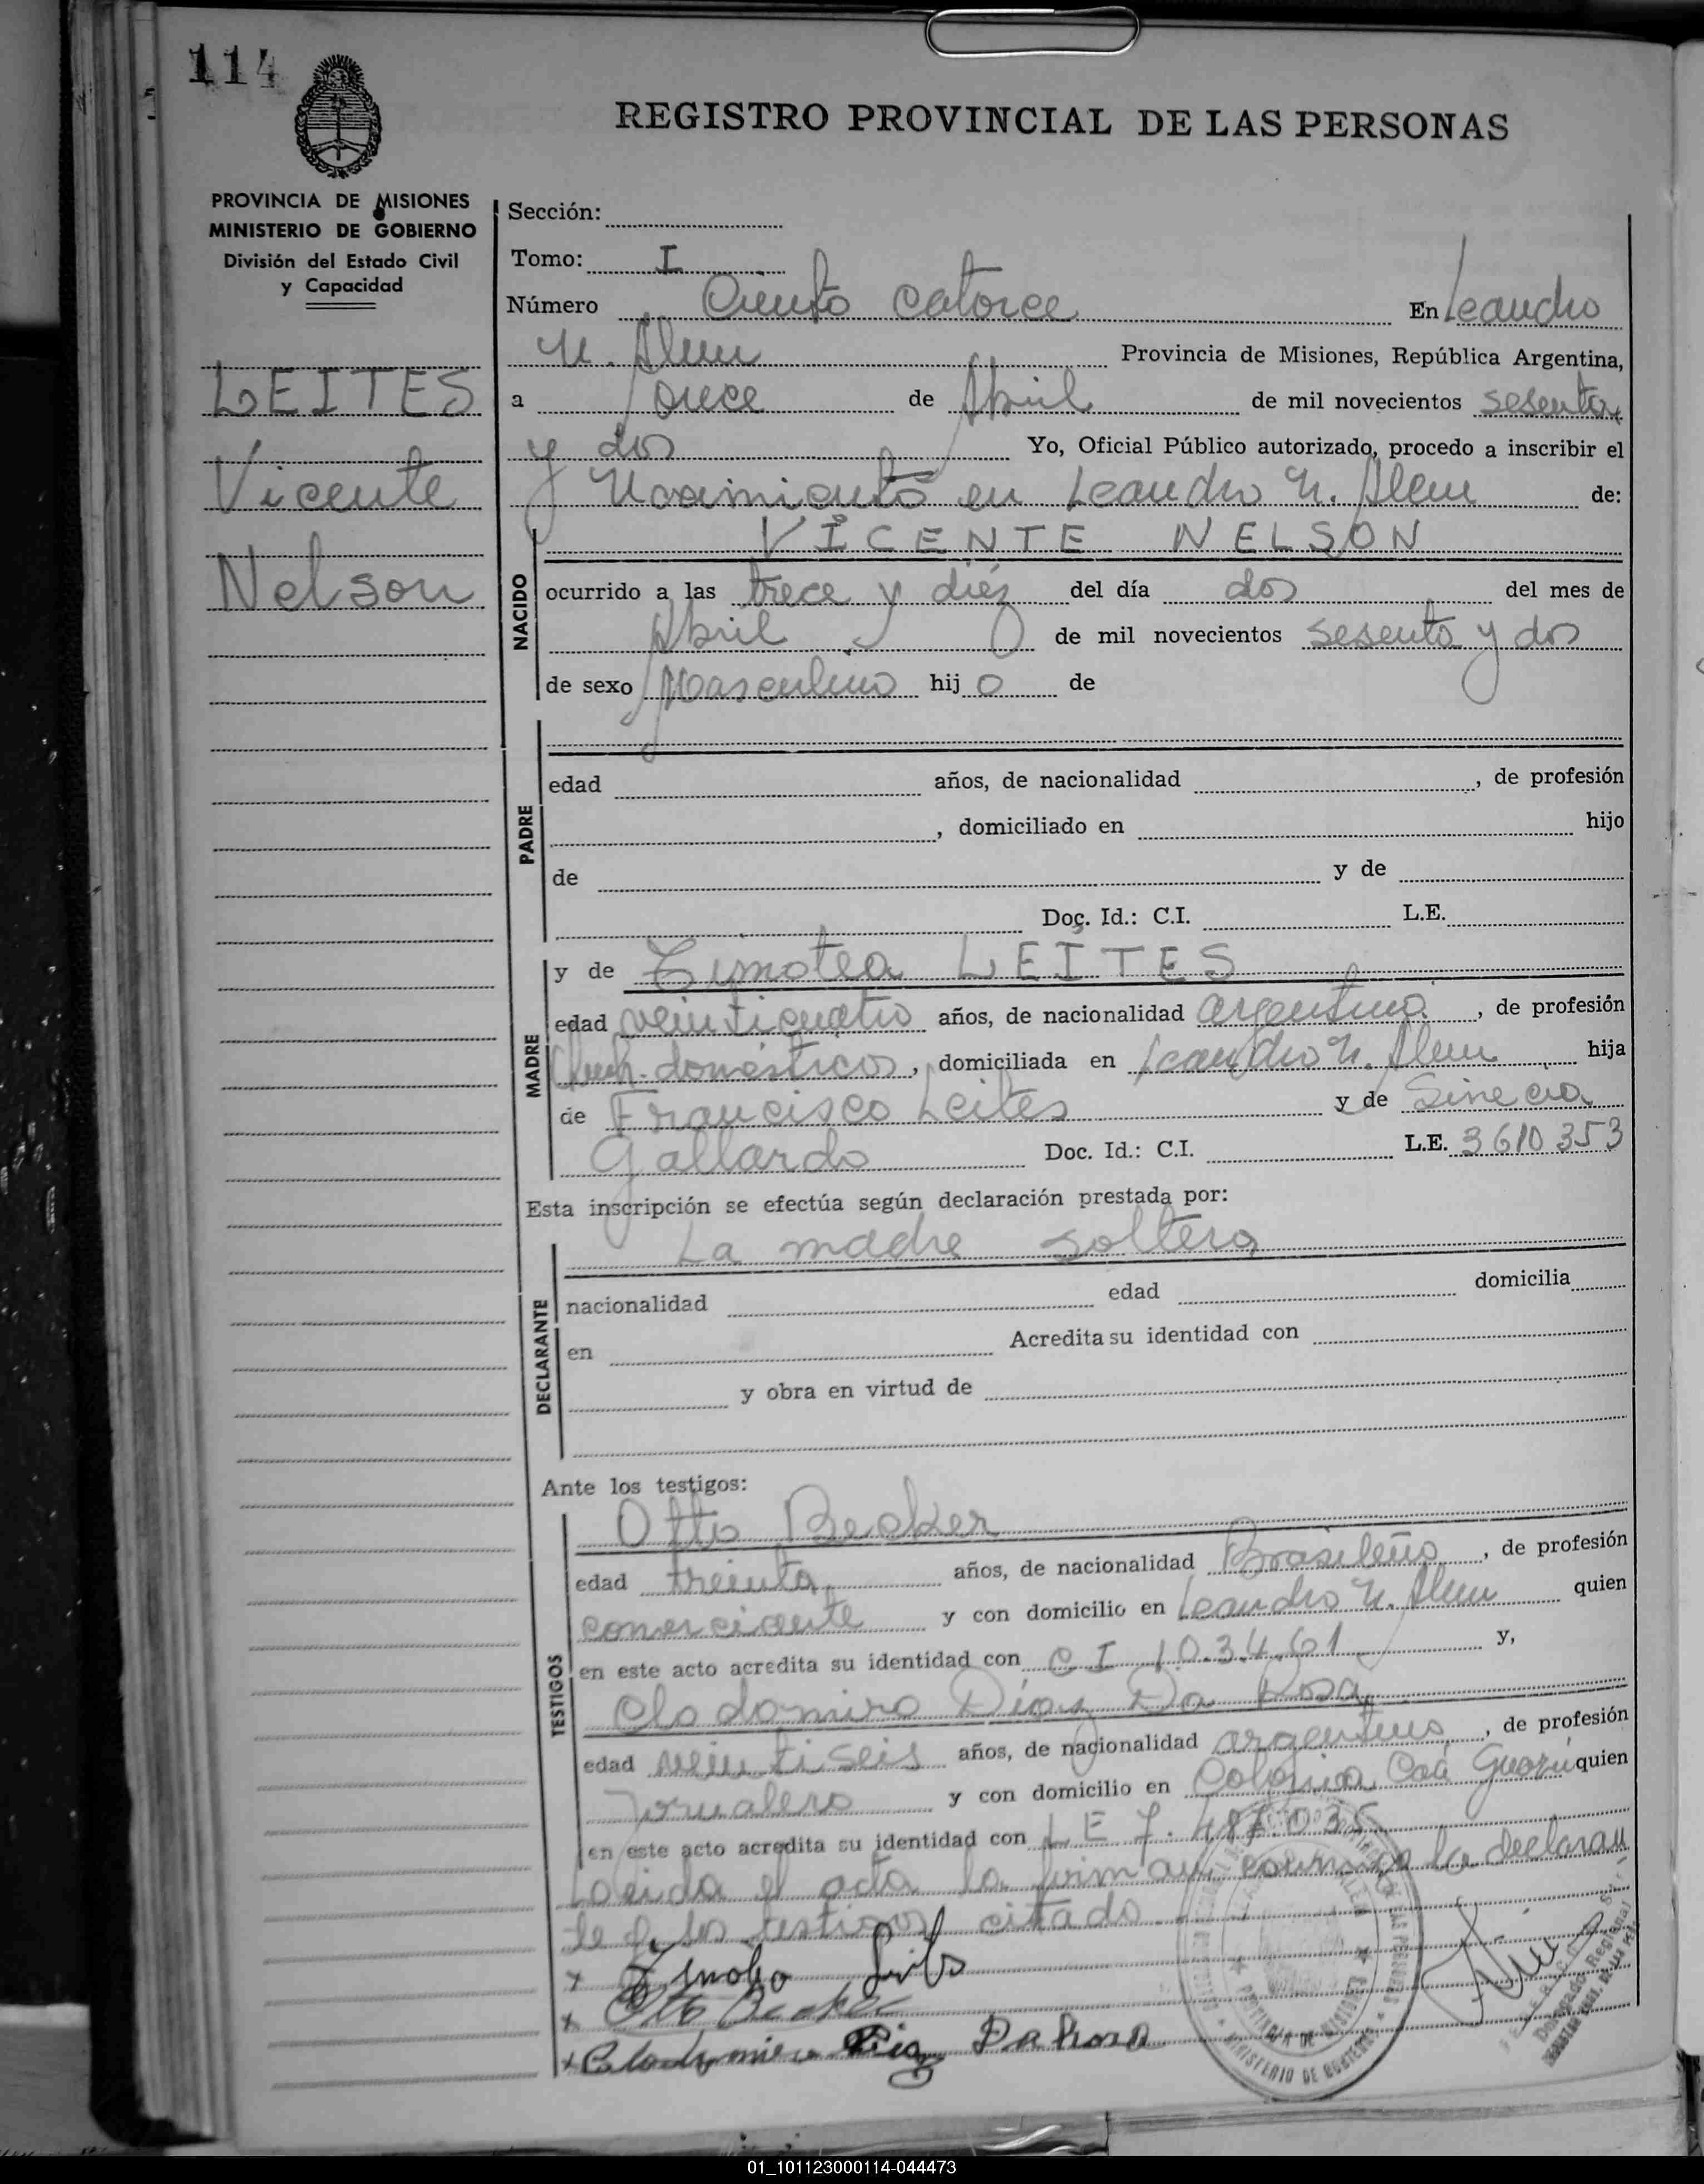 114
REGISTRO PROVINCIAL DE LAS PERSONAS
PROVINCIA DE MISIONES
MINISTERIO DE GOBIERNO
División del Estado Civil
y Capacidad
LEITES
Vicente
Nelson
Sección:
Tomo: I
Número Ciento catorce En Leandro
N. Alem Provincia de Misiones, República Argentina,
a once de Abril de mil novecientos sesenta
y dos Yo, Oficial Público autorizado, procedo a inscribir el
Nacimiento en Leandro N. Alem de:
VICENTE NELSON
NACIDO
ocurrido a las trece y diéz del día dos del mes de
Abril de mil novecientos sesenta y dos
de sexo Masculino hij o de
PADRE
edad años, de nacionalidad , de profesión
, domiciliado en hijo
de y de
Doc. Id.: C.I. L.E.
MADRE
y de Timotea LEITES
edad veinticuatro años, de nacionalidad argentina , de profesión
domésticos, domiciliada en Leandro N. Alem hija
de Francisco Leites y de
Gallardo Doc. Id.: C.I. L.E. 3610353
Esta inscripción se efectúa según declaración prestada por:
La madre soltera
DECLARANTE
nacionalidad edad domicilia
en Acredita su identidad con
y obra en virtud de
Ante los testigos:
TESTIGOS
Otto Becker
edad treinta años, de nacionalidad Brasileño , de profesión
comerciante y con domicilio en Leandro N. Alem quien
en este acto acredita su identidad con C I 103.461 y,
Clodomiro Díaz Da Rosa
edad veintiseis años, de nacionalidad argentino , de profesión
Jornalero y con domicilio en Colonia Caá Guazú quien
en este acto acredita su identidad con L E 7.487.035
Leida el acta la firman conmigo la declaran
te y los testigos citado
x Timotea Leites
x Otto Becker
x Clodomiro Diaz Da Rosa
PROVINCIA DE MISIONES
MINISTERIO DE GOBIERNO
Delegado Regional
01_101123000114-044473